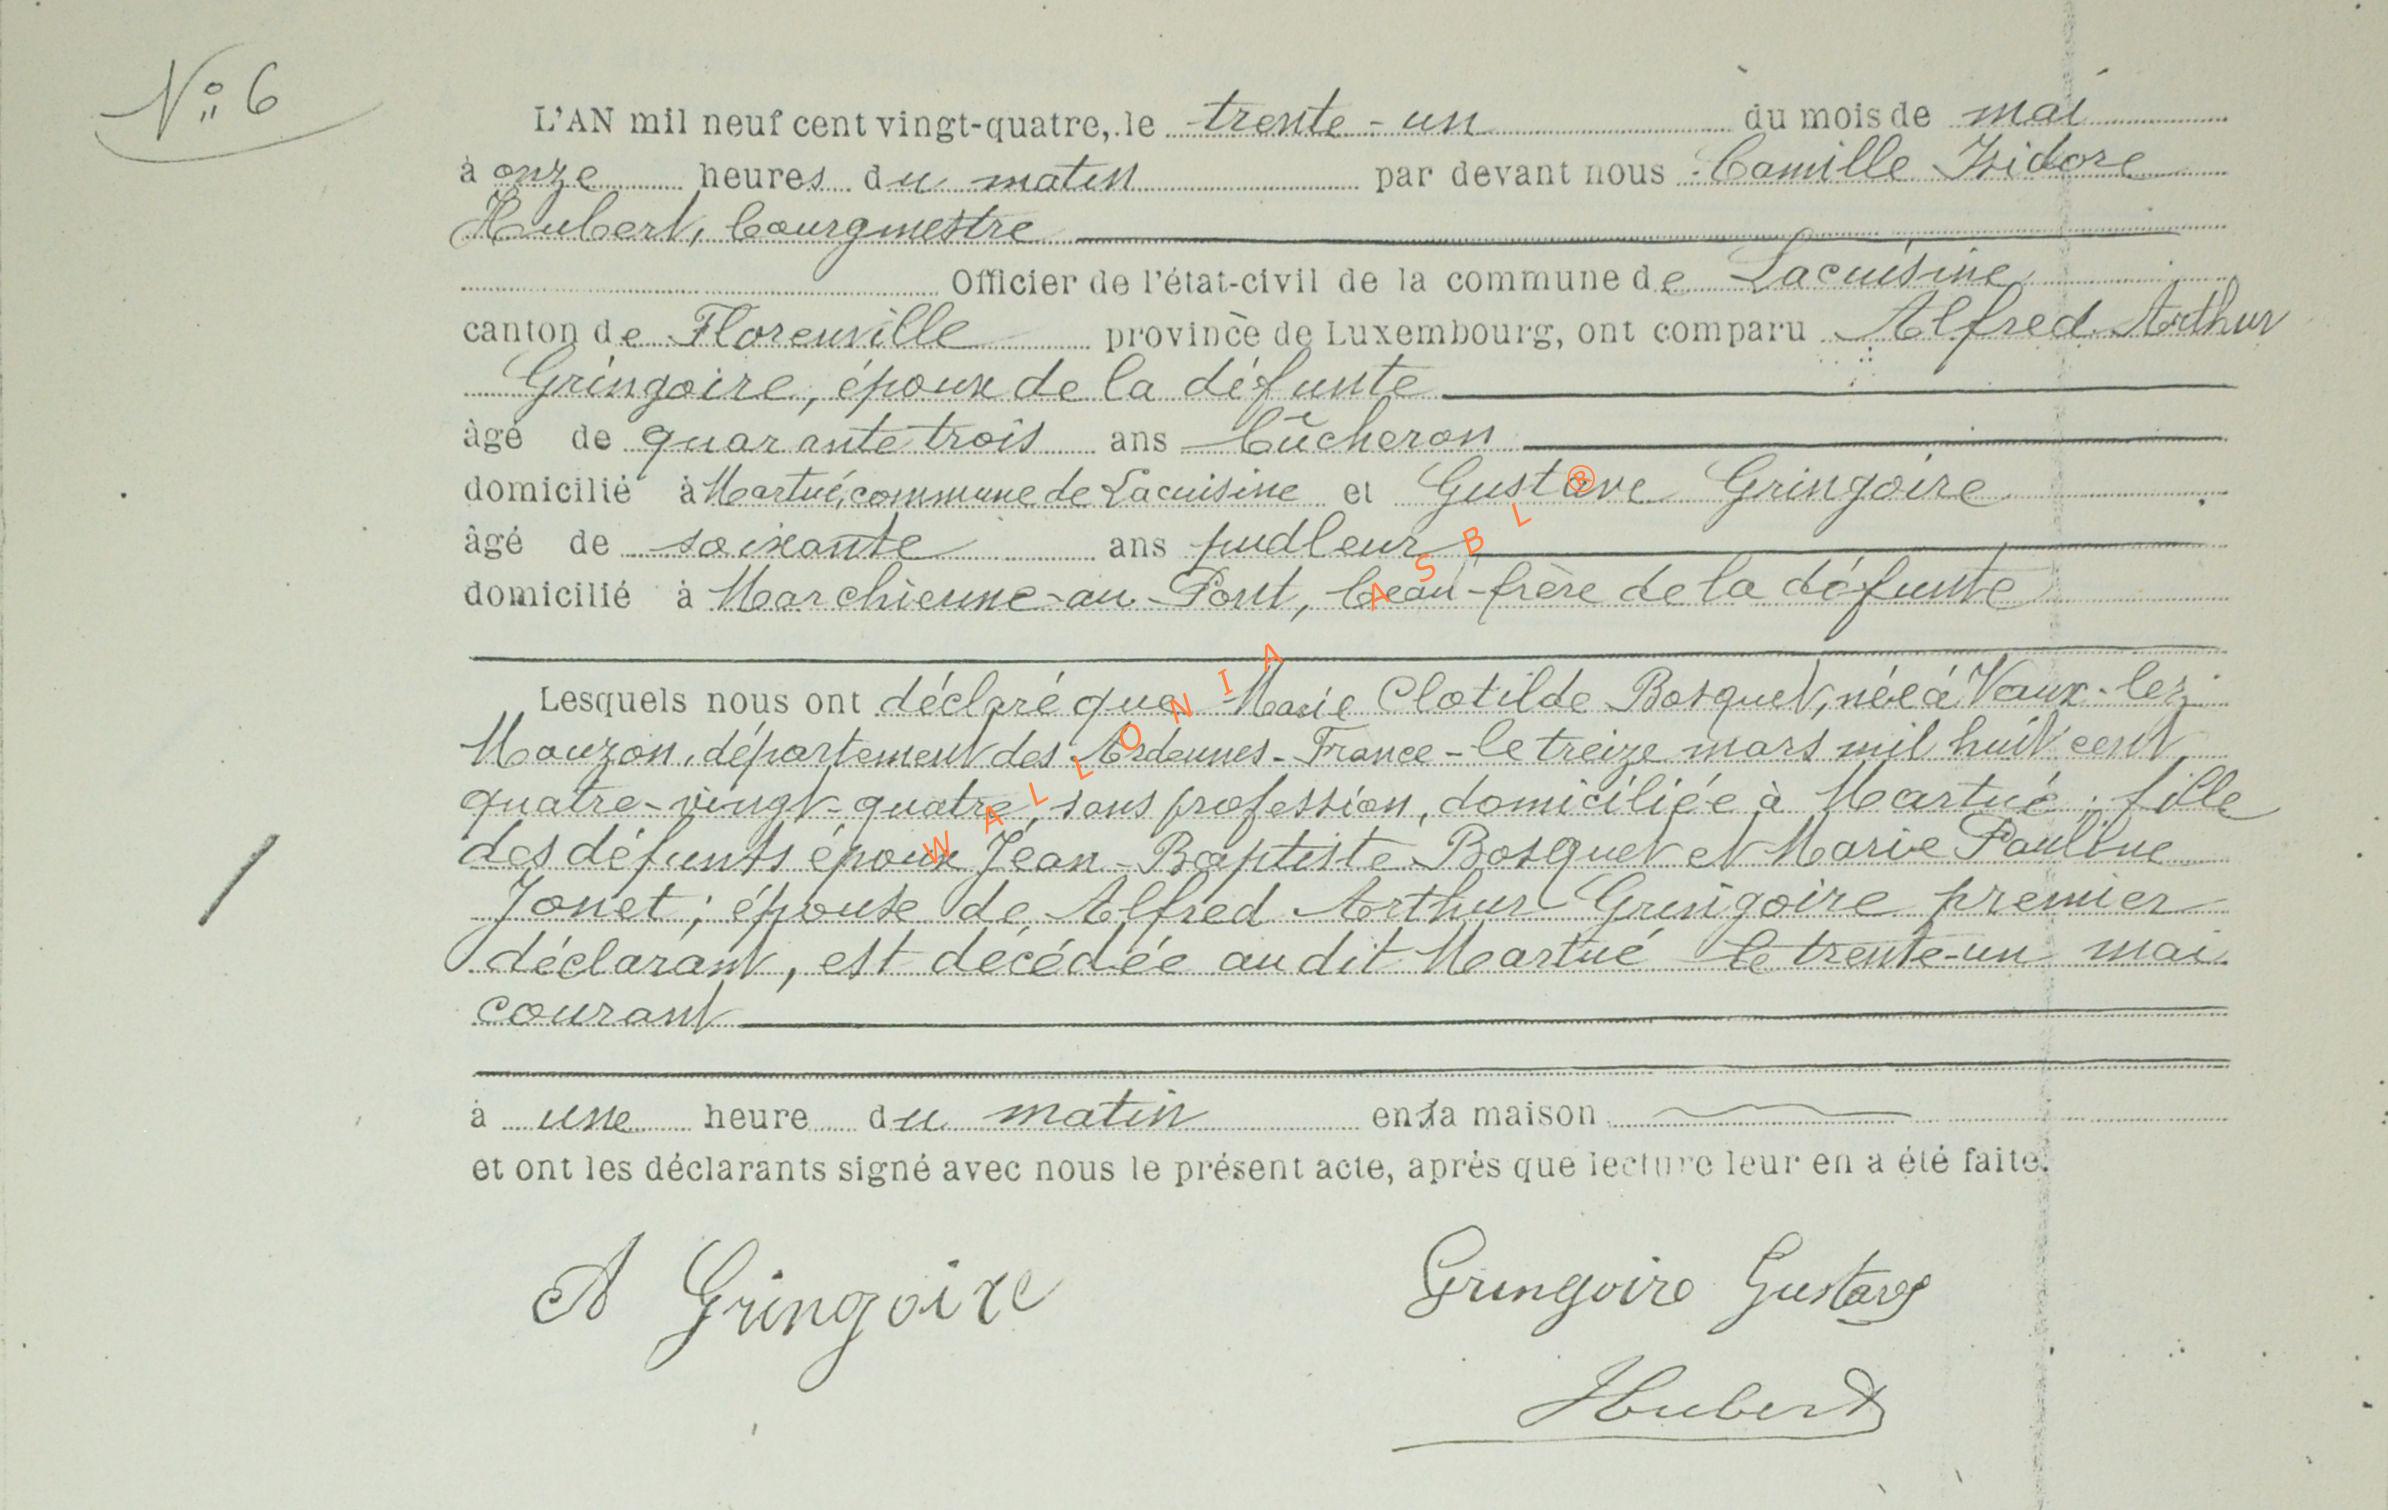 Nº 6
L'AN mil neuf cent vingt-quatre, le trente-un du mois de mai
à onze heures du matin par devant nous Camille Isidore
Hubert, bourgmestre
Officier de l'état-civil de la commune de Lacuisine
canton de Florenville province de Luxembourg, ont comparu Alfred Arthur
Gringoire, époux de la défunte
âgé de quarante trois ans bûcheron
domicilié à Martué, commune de Lacuisine et Gustave Gringoire
âgé de soixante ans pudleur
domicilié à Marchienne-au-Pont, beau-frère de la défunte
Lesquels nous ont déclaré que Marie Clotilde Bosquet, née à Vaux-lez-
Mouzon, département des Ardennes - France - le treize mars mil huit cent
quatre-vingt-quatre, sans profession, domiciliée à Martué ; fille
des défunts époux Jean-Baptiste Bosquet et Marie Pauline
Jonet ; épouse de Alfred Arthur Gringoire premier
déclarant, est décédée au dit Martué le trente-un mai
courant
à une heure du matin en sa maison
et ont les déclarants signé avec nous le présent acte, après que lecture leur en a été faite.
A Gringoire
Gringoire Gustave
Hubert
WALLONIA ASBL ®